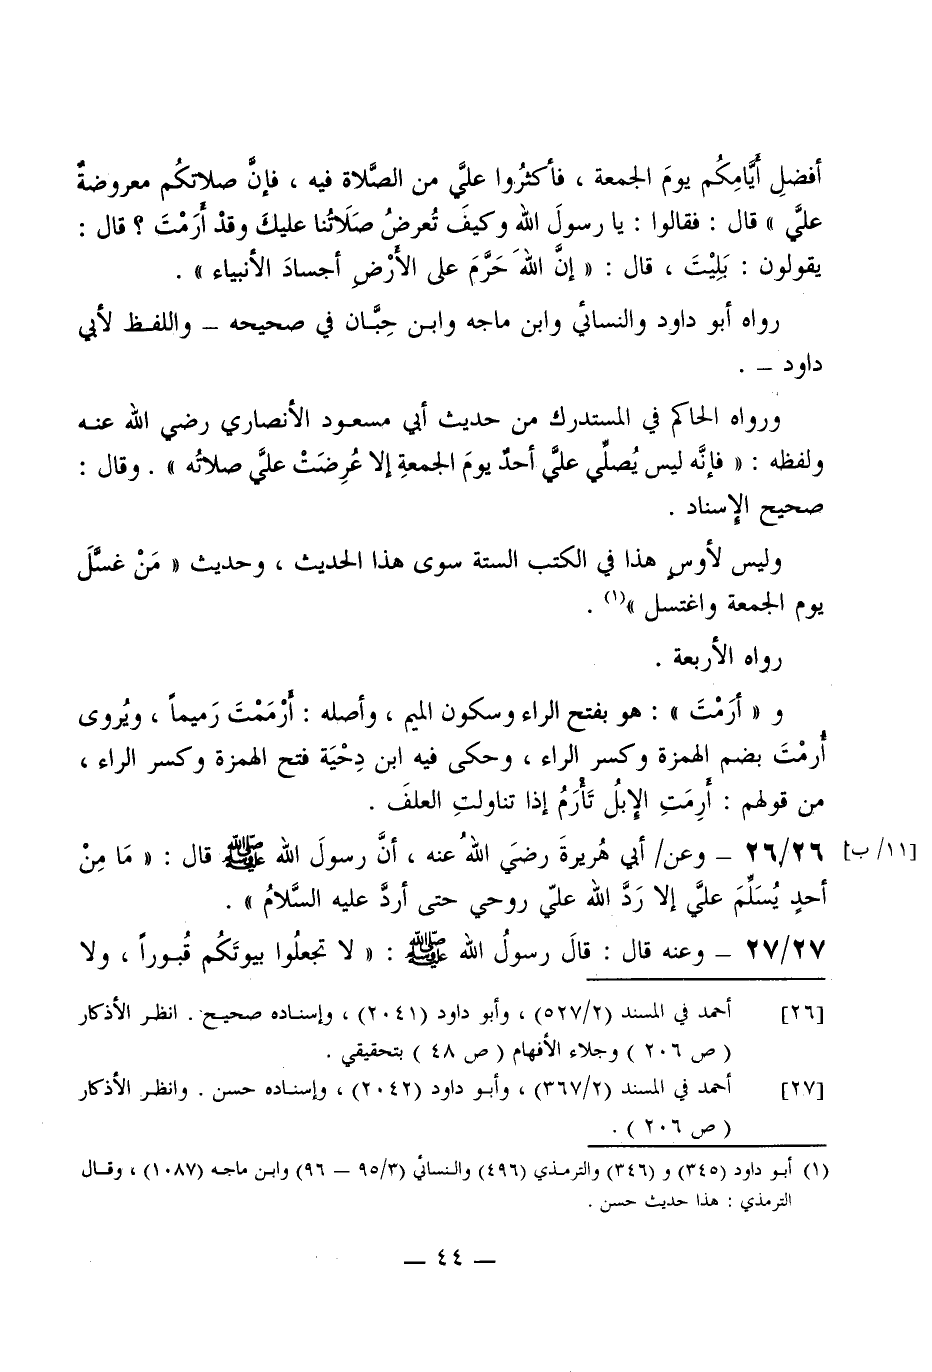 أفضلِ أَيَّامِكُم يومَ الجمعة ، فأكثرُوا عليَّ من الصَّلاة فيه ، فإنَّ صلاتكُم معروضةٌ
عليَّ » قال : فقالوا : يا رسولَ الله وكيفَ تُعرضُ صَلَاتُنا عليكَ وقدْ أَرَمْتَ ؟ قال :
يقولون : بَلِيْتَ ، قال : « إنَّ اللهَ حَرَّمَ على الأَرْضِ أجسادَ الأنبياء » .
رواه أبو داود والنسائي وابن ماجه وابـن حِبَّـان في صحيحه – واللفـظ لأبي
داود – .
ورواه الحاكم في المستدرك من حديث أبي مسعـود الأنصاري رضي الله عنـه
ولفظه : « فإنَّه ليس يُصلِّي عليَّ أحدٌ يومَ الجمعةِ إلا عُرِضَتْ عليَّ صلاتُه » . وقال :
صحيح الإسناد .
وليس لأوسٍ هذا في الكتب الستة سوى هذا الحديث ، وحديث « مَنْ غسَّلَ
يوم الجمعة واغتسل »(١) .
رواه الأربعة .
و « أرَمْتَ » : هو بفتح الراء وسكون الميم ، وأصله : أَرْمَمْتَ رَميماً ، ويُروى
أُرِمْتَ بضم الهمزة وكسر الراء ، وحكى فيه ابن دِحْيَة فتح الهمزة وكسر الراء ،
من قولهم : أَرِمَتِ الإبلُ تَأْرَمُ إذا تناولتِ العلفَ .
٢٦/٢٦ – وعن/ أبي هُريرةَ رضيَ اللهُ عنه ، أنَّ رسولَ الله ﷺ قال : « مَا مِنْ [١١/ ب]
أحدٍ يُسَلِّمَ عليَّ إلا رَدَّ الله عليّ روحي حتى أردَّ عليه السَّلامُ » .
٢٧/٢٧ – وعنه قال : قالَ رسولُ الله ﷺ : « لا تجعلُوا بيوتَكُم قُبـوراً ، ولا
[٢٦] أحمد في المسند (٥٢٧/٢) ، وأبو داود (٢٠٤١) ، وإسنـاده صحيـح . انظـر الأذكـار
( ص ٢٠٦ ) وجلاء الأفهام ( ص ٤٨ ) بتحقيقي .
[٢٧] أحمد في المسند (٣٦٧/٢) ، وأبـو داود (٢٠٤٢) ، وإسنـاده حسن . وانظـر الأذكـار
( ص ٢٠٦ ) .
(١) أبو داود (٣٤٥) و (٣٤٦) والترمذي (٤٩٦) والنسائي (٩٥/٣ – ٩٦) وابن ماجه (١٠٨٧) ، وقـال
الترمذي : هذا حديث حسن .
– ٤٤ –